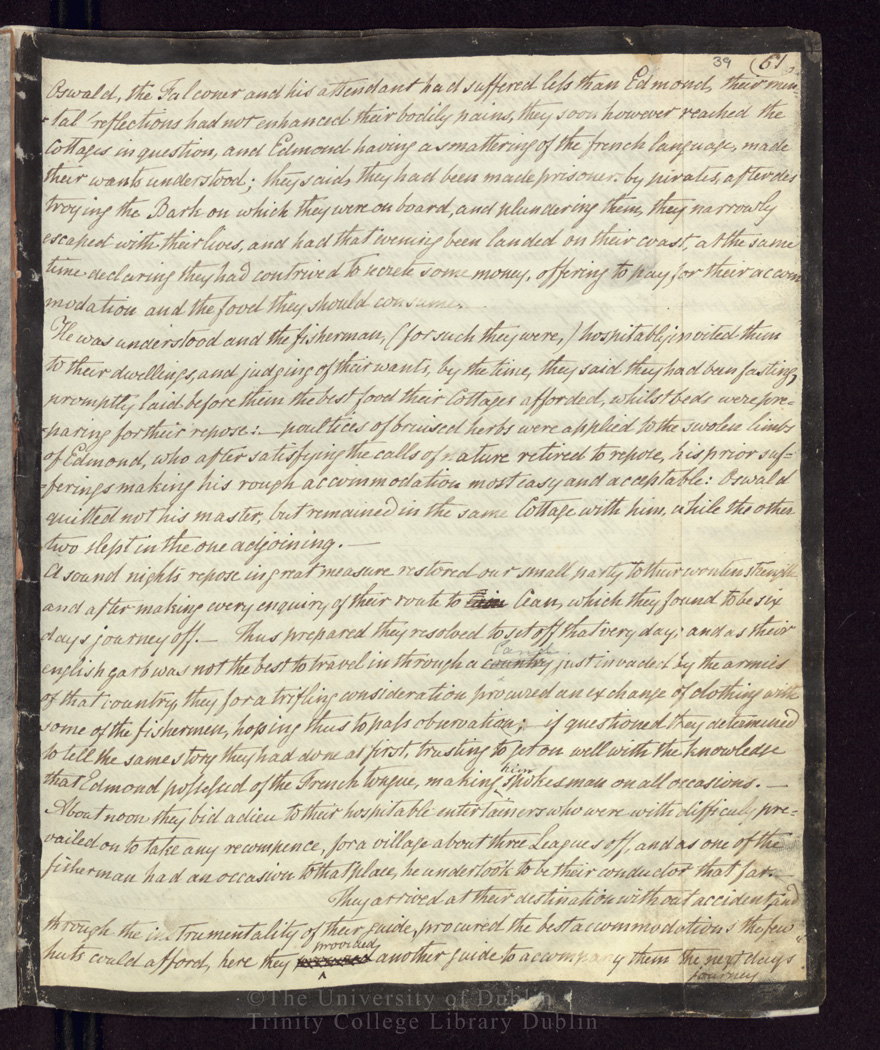 39 (61.
Oswald, the Falconer and his attendant had suffered less than Edmond, their men-
-tal reflections had not enhanced their bodily pains, they soon however reached the
Cottages in question, and Edmond having a smattering of the french language, made
their wants understood; they said, they had been made prisoners by pirates, after des
troying the Bark on which they were on board, and plundering them, they narrowly
escaped with their lives, and had that evening been landed on their coast, at the same
time declaring they had contrived to secrete some money, offering to pay for their accom
modation and the food they should consume.
He was understood and the fisherman, (for such they were,) hospitably invited them
to their dwellings, and judging of their wants, by the time, they said they had been fasting,
promptly laid before them the best food their Cottages afforded, whilst beds were pre=
-paring for their repose:— poultices of bruised herbs were applied to the swolen limbs
of Edmond, who after satisfying the calls of nature retired to repose, his prior suf=
=ferings making his rough accommodation most easy and acceptable: Oswald
quitted not his master, but remained in the same Cottage with him, while the other
two slept in the one adjoining.—
A sound nights repose in great measure restored our small party to their wonten strength
and after making every enquiry of their route to Cean, which they found to be six
days journey off.— Thus prepared they resolved to set off that very day; and as their
Land
english garb was not the best to travel in through a country just invaded by the armies
of that country, they for a trifling consideration procured an exchange of clothing with
some of the fishermen, hoping thus to pass observation;— if questioned they determined
to tell the same story they had done at first, trusting to get on well with the knowledge
that Edmond possessed of the French tongue, making him spokesman on all occasions.—
About noon they bid adieu to their hospitable entertainers who were with difficuly pre=
vailed on to take any recompence, for a village about three Leagues off, and as one of the
fisherman had an occasion to that place, he undertook to be their conductor that far—
They arrived at their destination without accident, and
through the instrumentality of their guide, procured the best accommodations the few
huts could afford, here they provided another guide to accompany them the next days
journey
©The University of Dublin
Trinity College Library Dublin